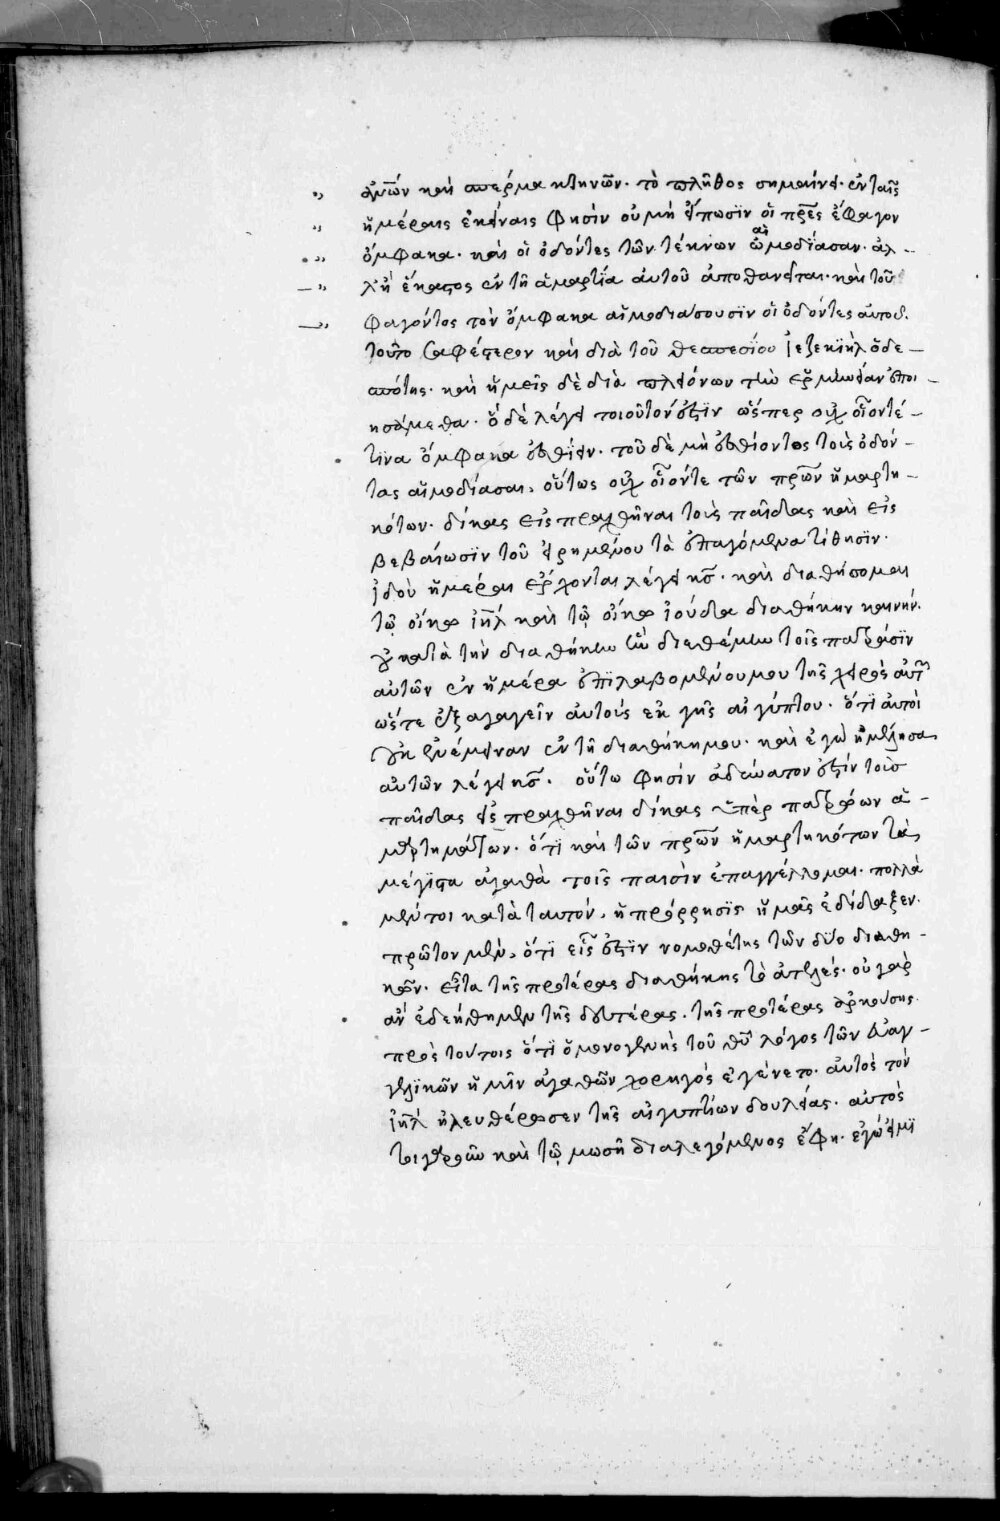 ἀν̅ων̅ καὶ σπέρμα κτηνῶν· τὸ πλῆθος σημαίνει· ἐν ταῖς
ἡμέραις ἐκείναις φησὶν οὐ μὴ εἴπωσϊν οἱ πρ̅ε̅ς ἔφαγον
ὄμφακα· καὶ οἱ ὀδόντες τῶν τέκνων ὡμωδίασαν· ἀλ-
λ' ἢ ἕκαστος ἐν τῆ ἁμαρτία αὐτοῦ ἀποθανεῖται· καὶ τοῦ
φαγόντος τὸν ὄμφακα αἱμωδιάσουσϊν οἱ ὀδόντες αὐτοῦ.
τοῦτο σαφέστερον καὶ διὰ τοῦ θεσπεσίου ἰεζεκϊὴλ ὁ δε-
σπότης· καὶ ἡμεῖς δὲ διὰ πλειόνων τὴν ἑρμηνείαν ἐποι-
ησάμεθα· ὃ δὲ λέγει τοιοῦτόν ἐστϊν ὥσπερ οὐχ οἷόντέ-
τϊνα ὄμφακα ἐσθίειν· τοῦ δὲ μὴ ἐσθίοντος τοὺς ὀδόν-
τας αἱμωδιάσαι, οὕτως οὐχ οἷόντε τῶν πρ̅ων̅ ἡμαρτη-
κότων· δίκας εἰσπραχθῆναι τοὺς παῖδας καὶ εἰς
βεβαίωσϊν τοῦ εἰρημένου τὰ ἐπαγόμενα τίθησϊν·
ἰδοὺ ἡμέραι ἔρχονται λέγει κς̅· καὶ διαθήσομαι
τῶ οἴκω ἰη̅λ καὶ τῶ οἴκω ἰούδα διαθήκην καινήν·
οὐ κατὰ τὴν διαθήκην ἣν διεθέμην τοῖς πατράσϊν
αὐτῶν ἐν ἡμέρα ἐπϊλαβομένου μου τῆς χειρὸς αὐτῶν
ὥστε ἐξαγαγεῖν αὐτοὺς ἐκ γῆς αἰγύπτου· ὅτϊ αὐτοὶ
οὐκ ἐνέμειναν ἐν τῆ διαθήκη μου· καὶ ἐγὼ ἠμέλησα
αὐτῶν λέγει κς̅· οὕτω φησὶν ἀδύνατον ἐστϊν τοὺς
παῖδας εἰσπραχθῆναι δίκας ὑπὲρ πατρώων ἁ-
μαρτημάτων· ὅτϊ καὶ τῶν πρ̅ων̅ ἡμαρτηκότων τὰ
μέγϊστα ἀγαθὰ τοῖς παισὶν ἐπαγγέλλομαι· πολλὰ
μέντοι κατὰ ταυτὸν, ἡ πρόρρησϊς ἡμᾶς ἐδίδαξεν·
πρῶτον μὲν, ὅτϊ εἷς ἐστϊν νομοθέτης τῶν δύο διαθη-
κῶν· εἶτα τῆς προτέρας διαθήκης τὸ ἀτελές· οὐ γὰρ
ἂν ἐδεήθημεν τῆς δευτέρας, τῆς προτέρας ἀρκούσης·
πρὸς τούτοις ὅτϊ ὁ μονογενὴς τοῦ θυ̅ λόγος τῶν εὐαγ-
γελϊκῶν ἡμῖν ἀγαθῶν χορηγός ἐγένετο· αὐτὸς τὸν
ἰη̅λ ἠλευθέρωσεν τῆς αἰγυπτίων δουλείας· αὐτὸς
τοιγαροῦν καὶ τῶ μωσῆ διαλεγόμενος ἔφη· ἐγώ εἰμϊ